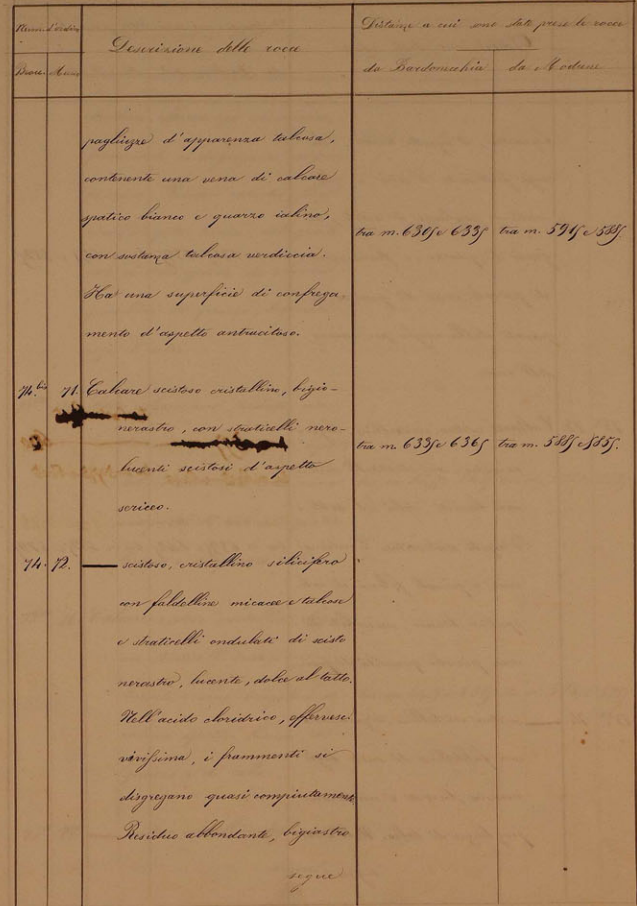 Num. d'ordine
Descrizione delle rocce
Distanze a cui sono state prese le rocce
da Bardonecchia
da Modane
pagliuzze d'apparenza talcosa,
contenente una vena di calcare
spatico bianco e quarzo ialino,
tra m. 6305 e 6335
tra m. 5915 e 5885
con sostanza talcosa verdiccia.
Ha una superficie di confrega-
mento d'aspetto antracitoso.
74 bis 71. Calcare scistoso cristallino, bigio-
nerastro, con straticelli nero-
tra m. 6335 e 6365
tra m. 5885 e 5855.
lucenti scistosi d'aspetto
sericeo.
74. 72. — scistoso, cristallino silicifero
con faldelline micacee e talcose
e straticelli ondulati di scisto
nerastro, lucente, dolce al tatto.
Nell'acido cloridrico, effervesc.
vivissima, i frammenti si
disgregano quasi compiutamente
Residuo abbondante, bigiastro
segue